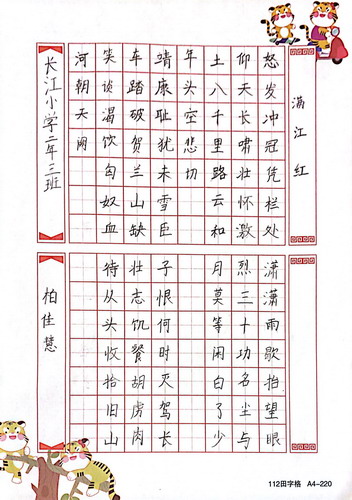 满江红
怒发冲冠凭栏处
潇潇雨歇抬望眼
仰天长啸壮怀激
烈三十功名尘与
土八千里路云和
月莫等闲白了少
年头空悲切
靖康耻犹未雪臣
子恨何时灭驾长
车踏破贺兰山缺
壮志饥餐胡虏肉
笑谈渴饮匈奴血
待从头收拾旧山
河朝天阙
长江小学二年三班
柏佳慧
112田字格 A4-220